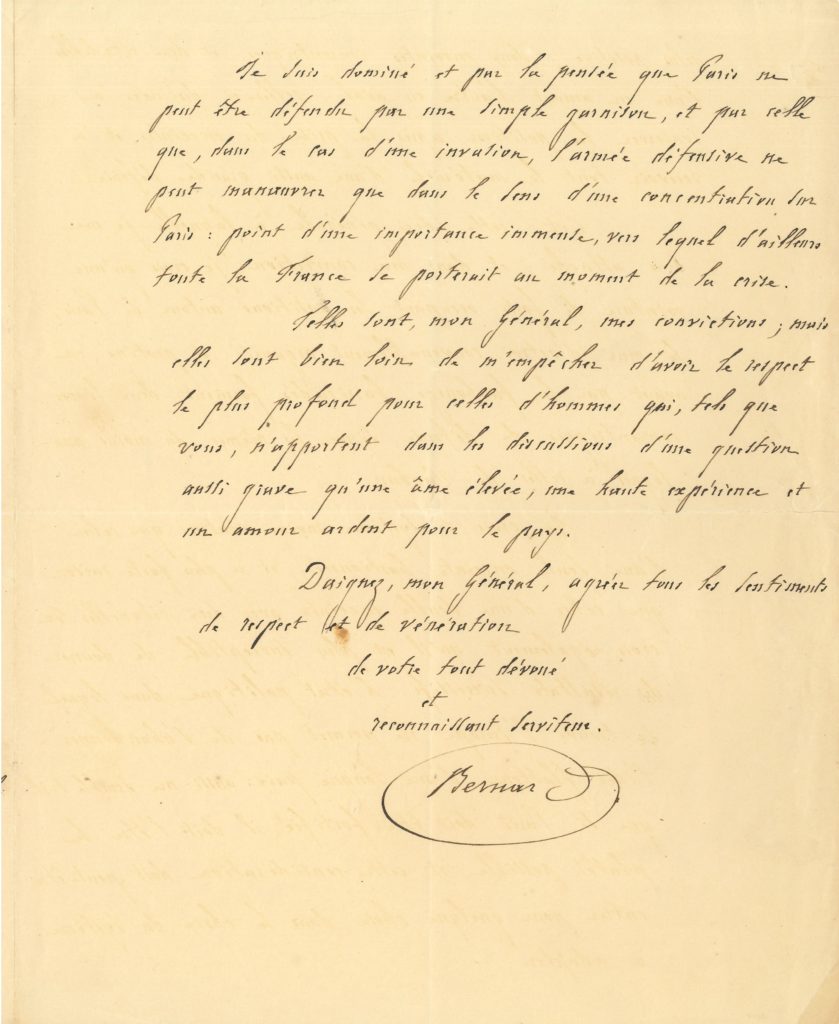 Je suis dominé et par la pensée que Paris ne
peut être défendu par une simple garnison, et par celle
que, dans le cas d'une invasion, l'armée défensive ne
peut manœuvrer que dans le sens d'une concentration sur
Paris : point d'une importance immense, vers lequel d'ailleurs
toute la France se porterait au moment de la crise.
Telles sont, mon Général, mes convictions ; mais
elles sont bien loin de m'empêcher d'avoir le respect
le plus profond pour celles d'hommes qui, tels que
vous, n'apportent dans les discussions d'une question
aussi grave qu'une âme élevée, une haute expérience et
un amour ardent pour le pays.
Daignez, mon Général, agréer tous les sentiments
de respect et de vénération
de votre tout dévoué
et
reconnaissant serviteur.
Bernard